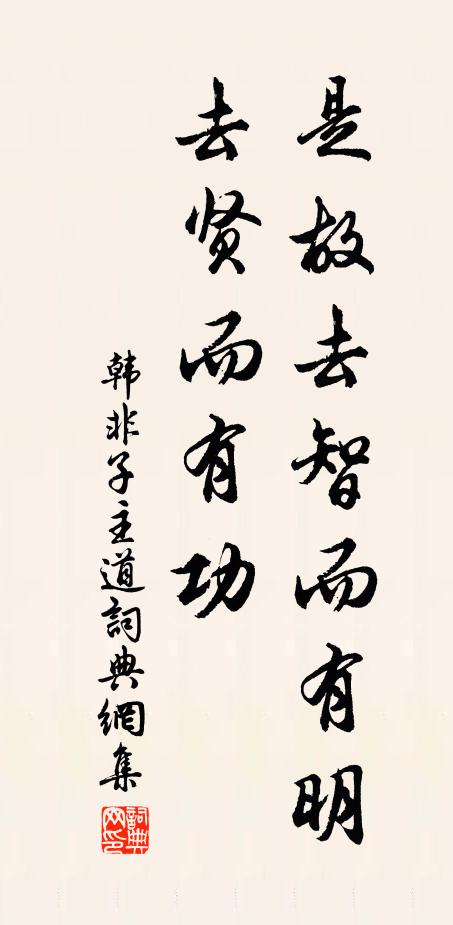 是故去智而有明
去贤而有功
韩非子主道詞典網集
詞典
网印